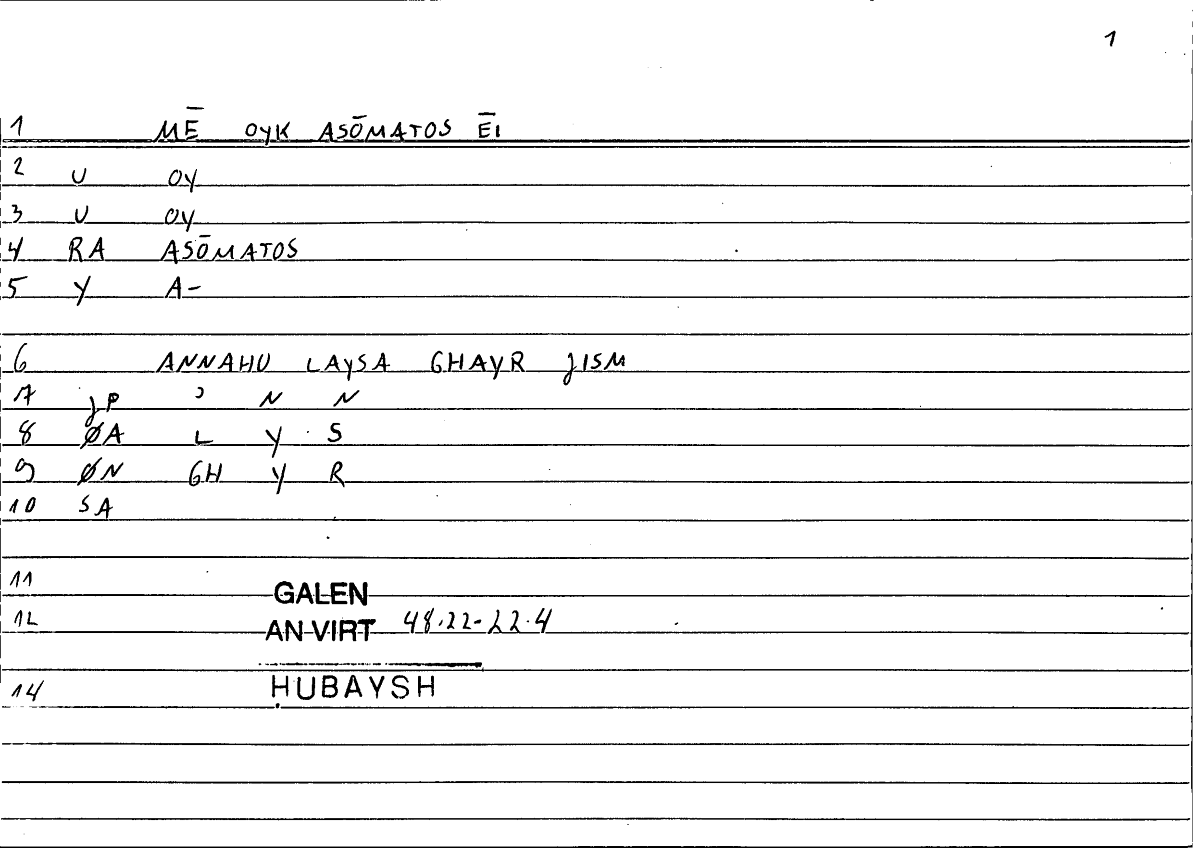 1
1 MĒ OYK ASŌMATOS ĒI
2 U OY
3 U OY
4 RA ASŌMATOS
5 Y A-
6 ANNAHU LAYSA GHAYR JISM
7 JP ʾ N N
8 ØA L Y S
9 ØN GH Y R
10 SA
11 GALEN
12 AN VIRT 48.22-22.4
14 ḤUBAYSH